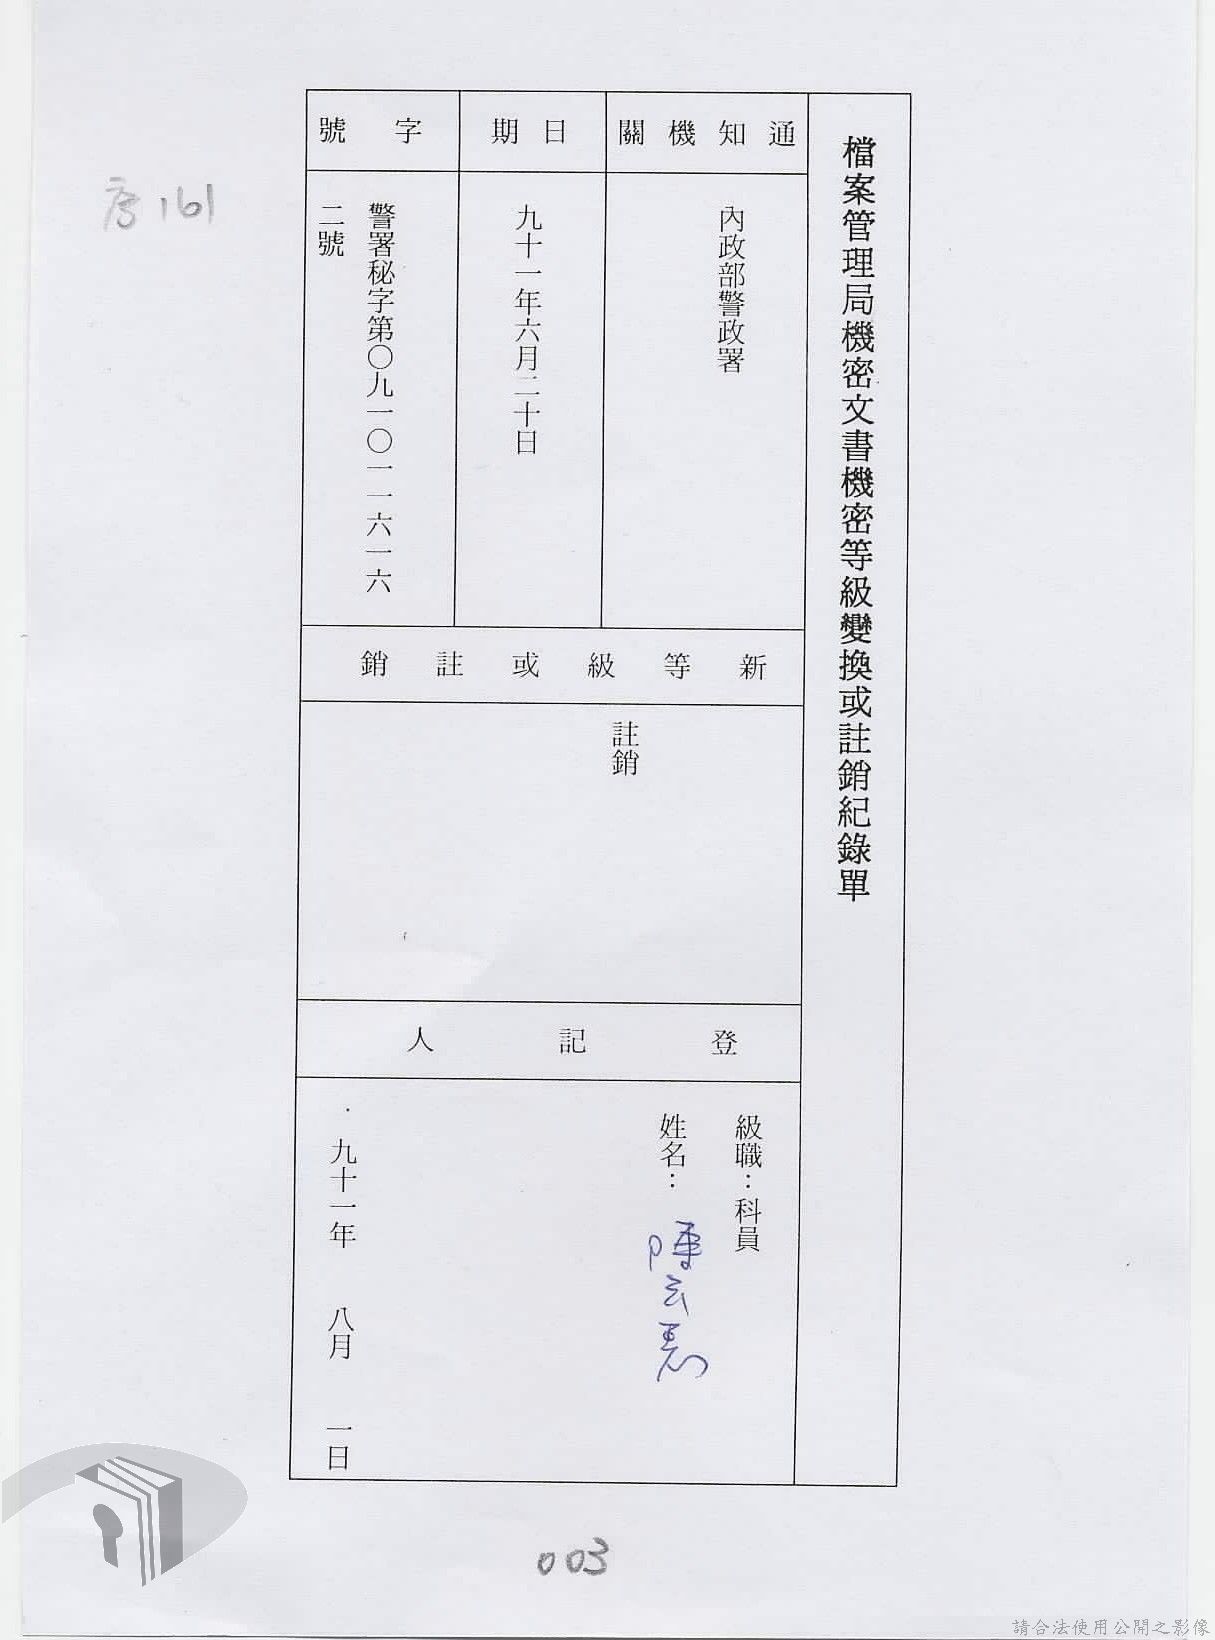 檔案管理局機密文書機密等級變換或註銷紀錄單
通知機關
內政部警政署
日期
九十一年六月二十日
字號
警署秘字第〇九一〇一一六一六
二號
新等級或註銷
註銷
登記人
級職：科員
姓名：陳
九十一年 八月 一日
161
003
請合法使用公開之影像